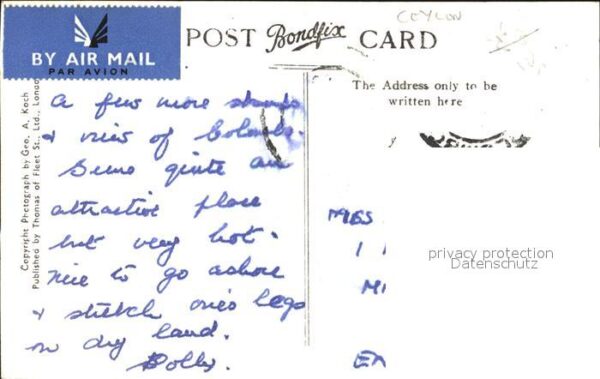 CEYLON
BY AIR MAIL
PAR AVION
POST Bondfix CARD
The Address only to be
written here
Copyright Photograph by Geo. A. Koch
Published by Thomas of Fleet St., Ltd., London
A few more stamps
& view of Colombo.
Seems quite an
attractive place
but very hot.
nice to go ashore
& stretch one's legs
on dry land.
Dolly.
MISS
privacy protection
Datenschutz